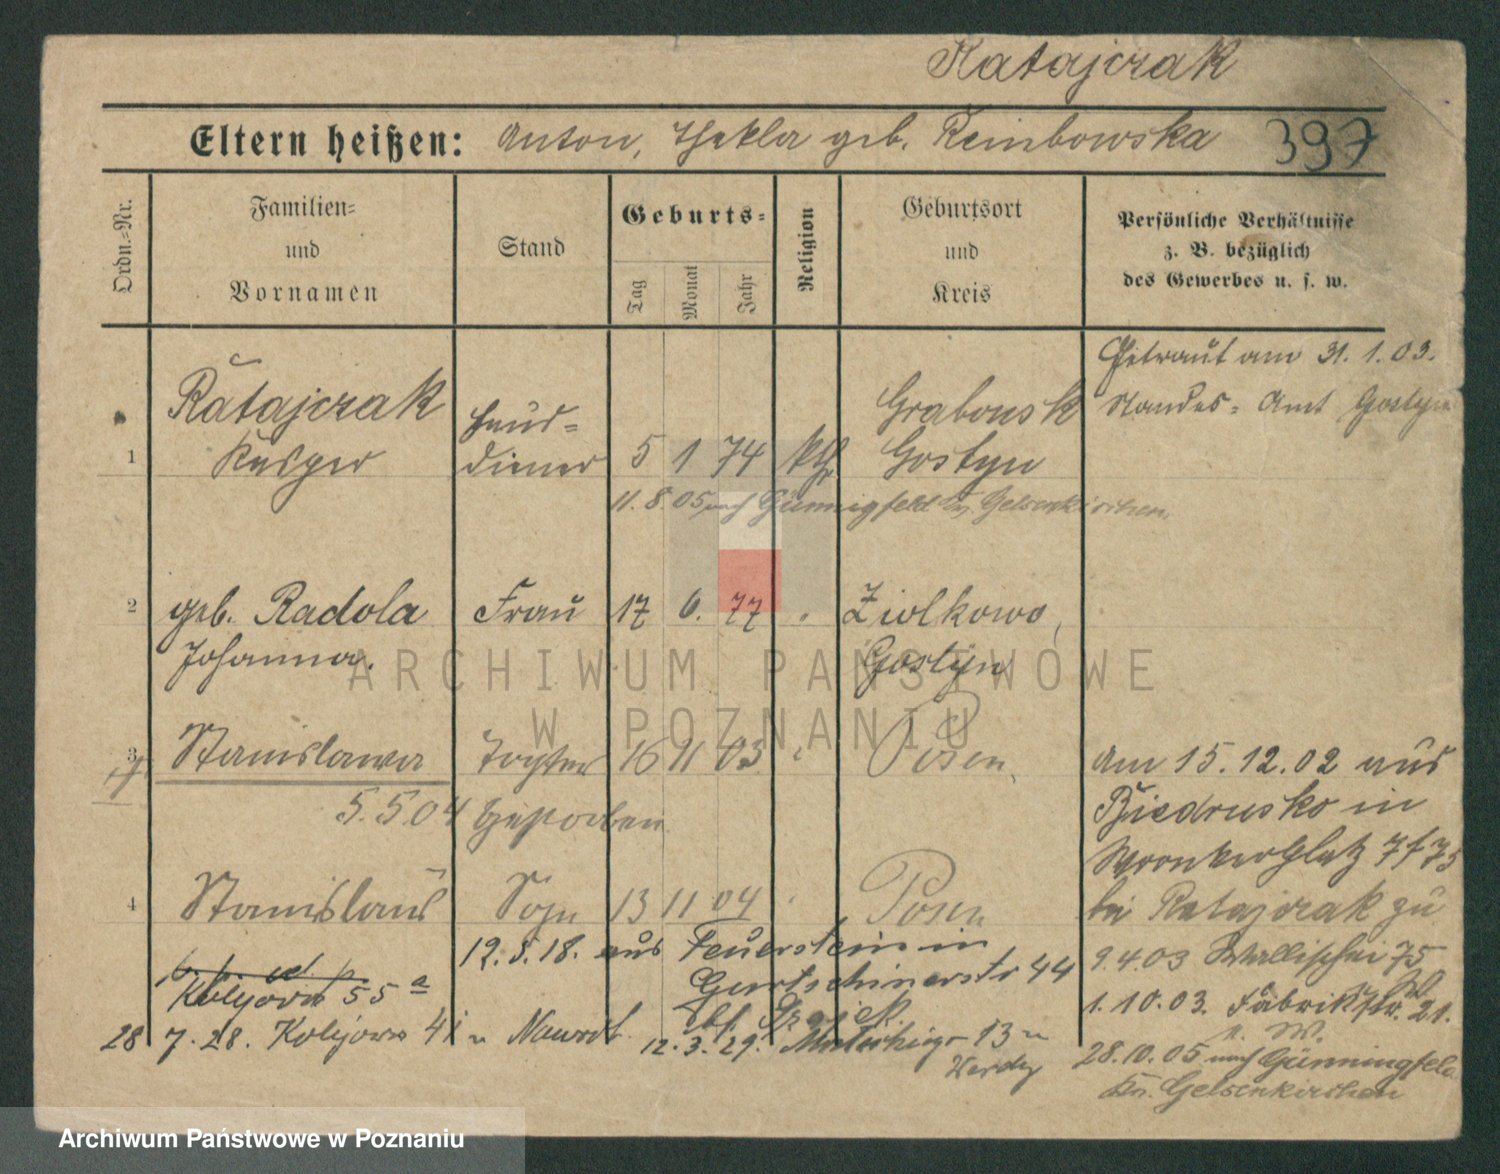 Ratajczak
Eltern heißen: Anton, Thekla geb. Rembowska 397
Ordn.=Nr.
Familien=
und
Vornamen
Stand
Geburts=
Tag
Monat
Jahr
Religion
Geburtsort
und
Kreis
Persönliche Verhältnisse
z. B. bezüglich
des Gewerbes u. s. w.
Getraut am 31. 1. 03.
Standes= Amt Gostyn
1 Ratajczak Haus= Grabonsk
Kasper diener 5 1 74 kth Gostyn
11. 8. 05 nach Günnigfeld Gelsenkirchen
2 geb. Radola Frau 17 6. 77 " Ziolkowo,
Johanna. Gostyn
3 Stanislawa Tochter 16 11 03 " Posen
5. 5. 04 gestorben
4 Stanislaus Sohn 13 11 04 " Posen
am 15. 12. 02 aus
Biedrusko in
Wronkerplatz
bei Ratajczak zu
9. 4. 03 Wallischei 75
1. 10. 03. Fabrikstr. 21.
n. W.
28. 10. 05 nach Günningfeld
Kr. Gelsenkirchen
12. 8. 18. aus Feuerstein in
Gurtschinerstr 44
bf.
55 a
28 7. 28. 12. 3. 29. 13
ARCHIWUM PAŃSTWOWE
W POZNANIU
Archiwum Państwowe w Poznaniu